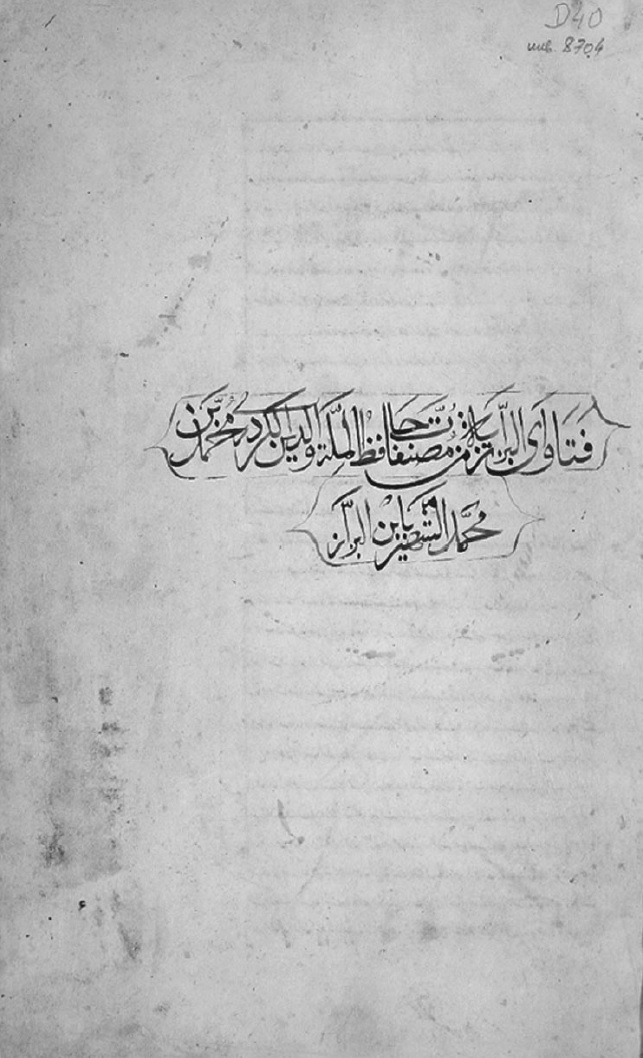 D40
инв. 8704
فتاوى البزازية من مصنفات حافظ الملة والدين الكردي محمد بن
محمد الشهير بابن البزاز